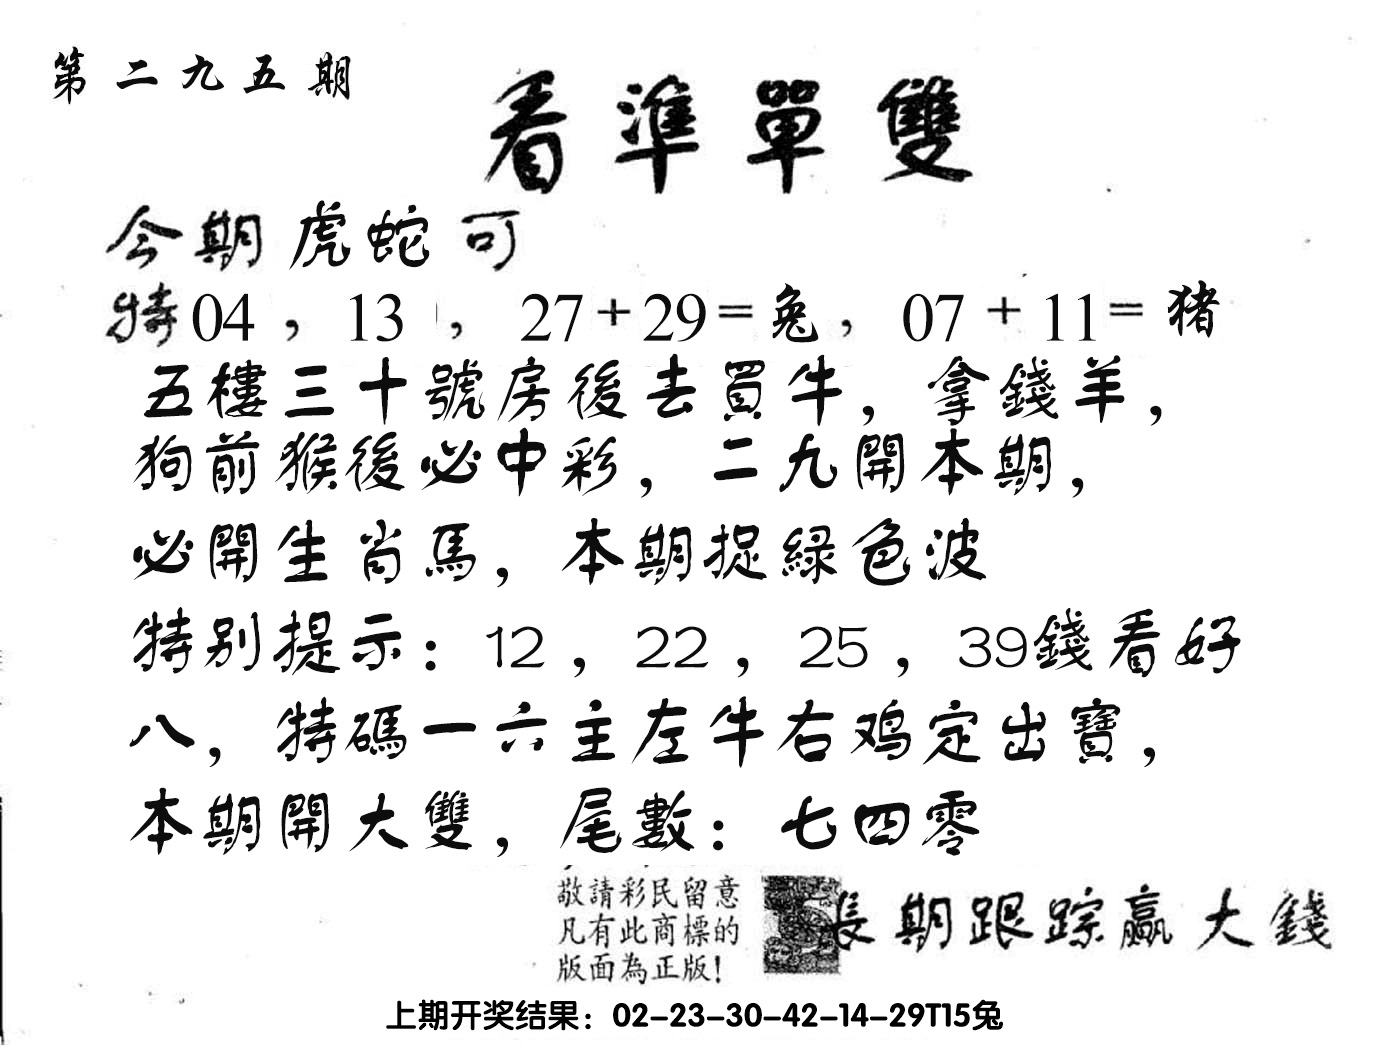 第二九五期
看準單雙
今期虎蛇可
特04，13，27+29=兔，07+11=猪
五樓三十號房後去買牛，拿錢羊，
狗前猴後必中彩，二九開本期，
必開生肖馬，本期捉綠色波
特别提示：12，22，25，39錢看好
八，特碼一六主左牛右鸡定出寶，
本期開大雙，尾數：七四零
敬請彩民留意
凡有此商標的
版面為正版！
長期跟踪赢大錢
上期开奖结果：02-23-30-42-14-29T15兔